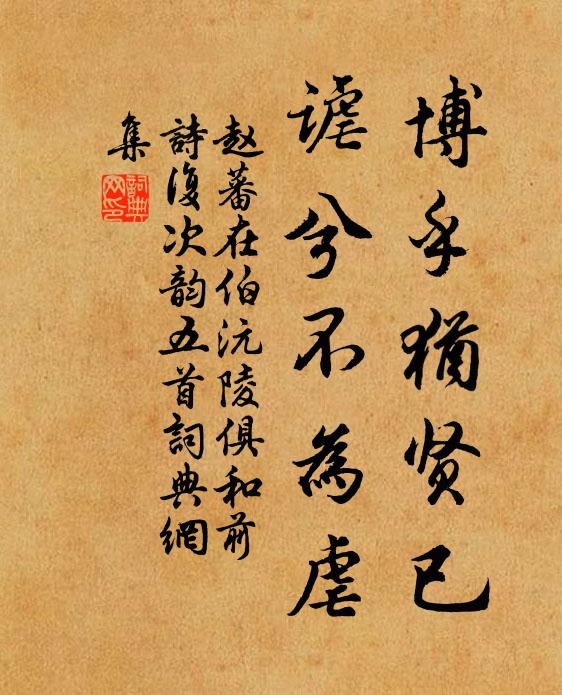 博乎猶贤已
謔兮不為虐
赵蕃在伯沅陵俱和前
詩復次韵五首詞典網
集
詞典网印